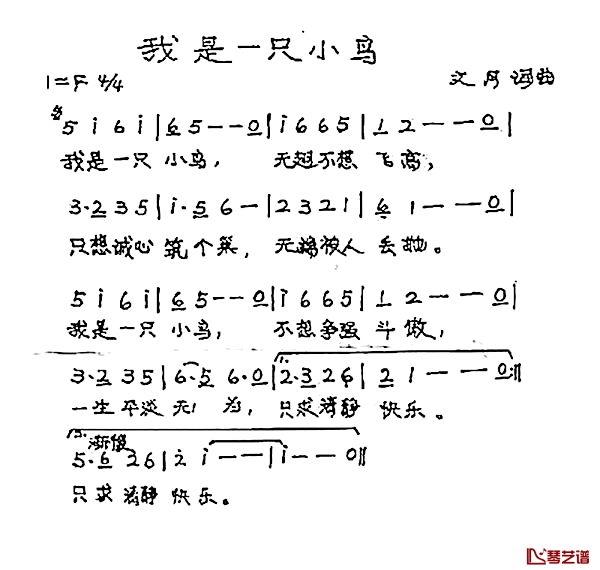 我是一只小鸟
1=F 4/4 文月词曲
5 i 6 i | 6 5 - - 0 | i 6 6 5 | 1 2 - - 0 |
我是一只 小鸟， 无 不想 飞高，
3·2 3 5 | i·5 6 - | 2 3 2 1 | 6 1 - - 0 |
只想诚心 筑个巢， 无 被人 丢抛。
5 i 6 i | 6 5 - - 0 | i 6 6 5 | 1 2 - - 0 |
我是一只 小鸟， 不想争强 斗傲，
3·2 3 5 | 6·5 6·0 | 2·3 2 6 | 2 1 - - 0 :||
一生平淡 无 为， 只求清静 快乐。
渐慢
5·6 2 6 | 2 i - - | i - - 0 ||
只求清静 快乐。
琴艺谱